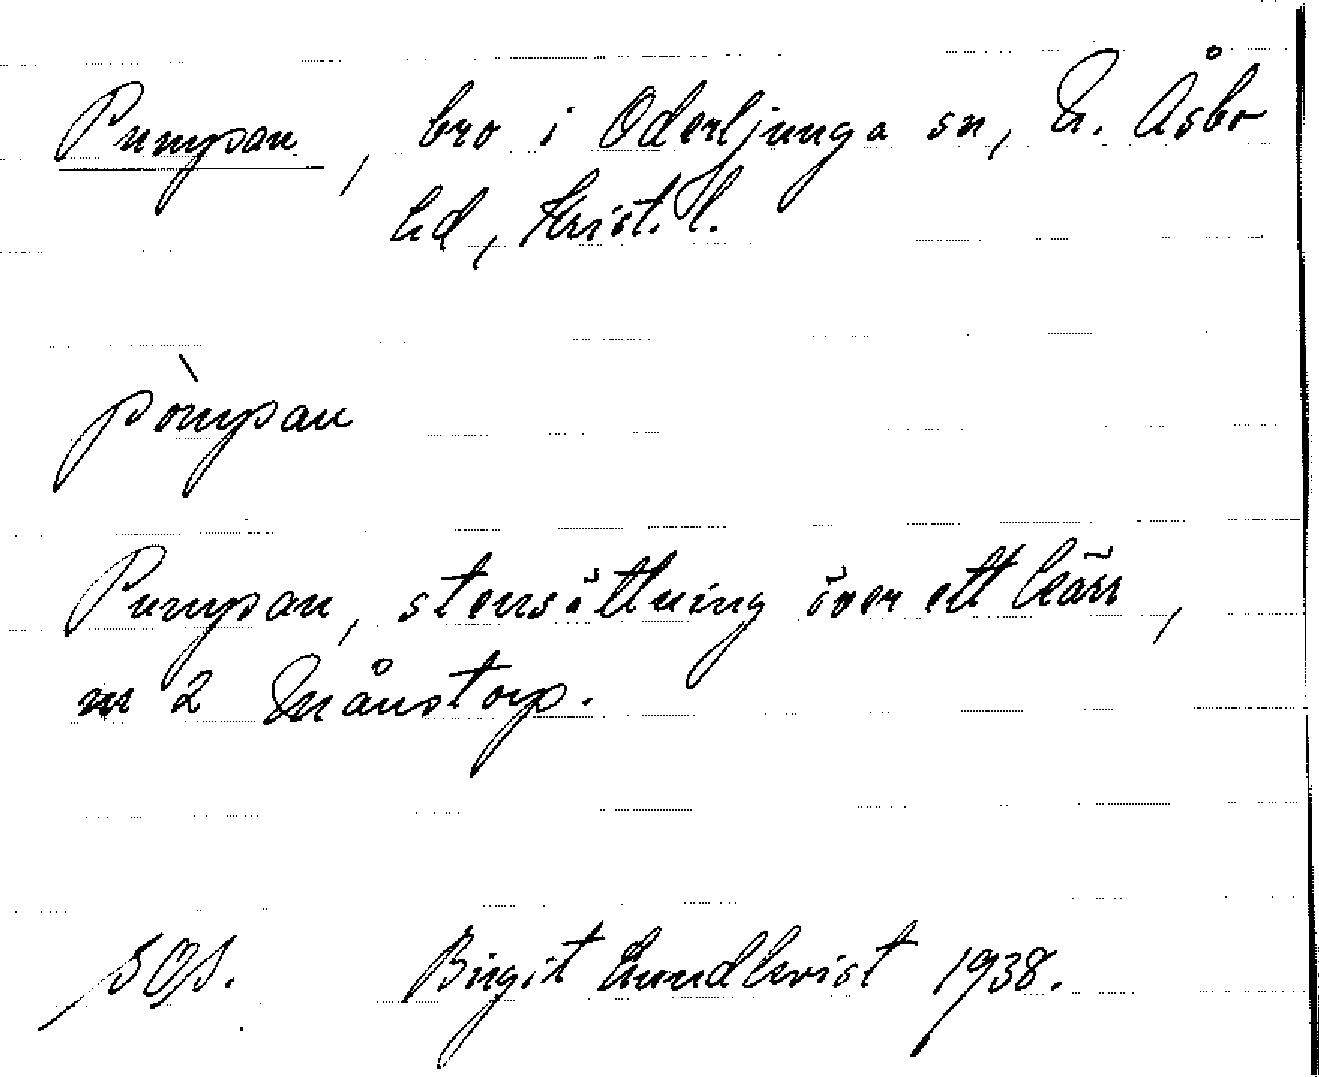 Pumpan, bro i Oderljunga sn, N. Åsbo
hd, Krist. l.
pòmpan
Pumpan, stensättning över ett kärr,
nr 2 Månstorp.
SOS. Birgit Lundkvist 1938.